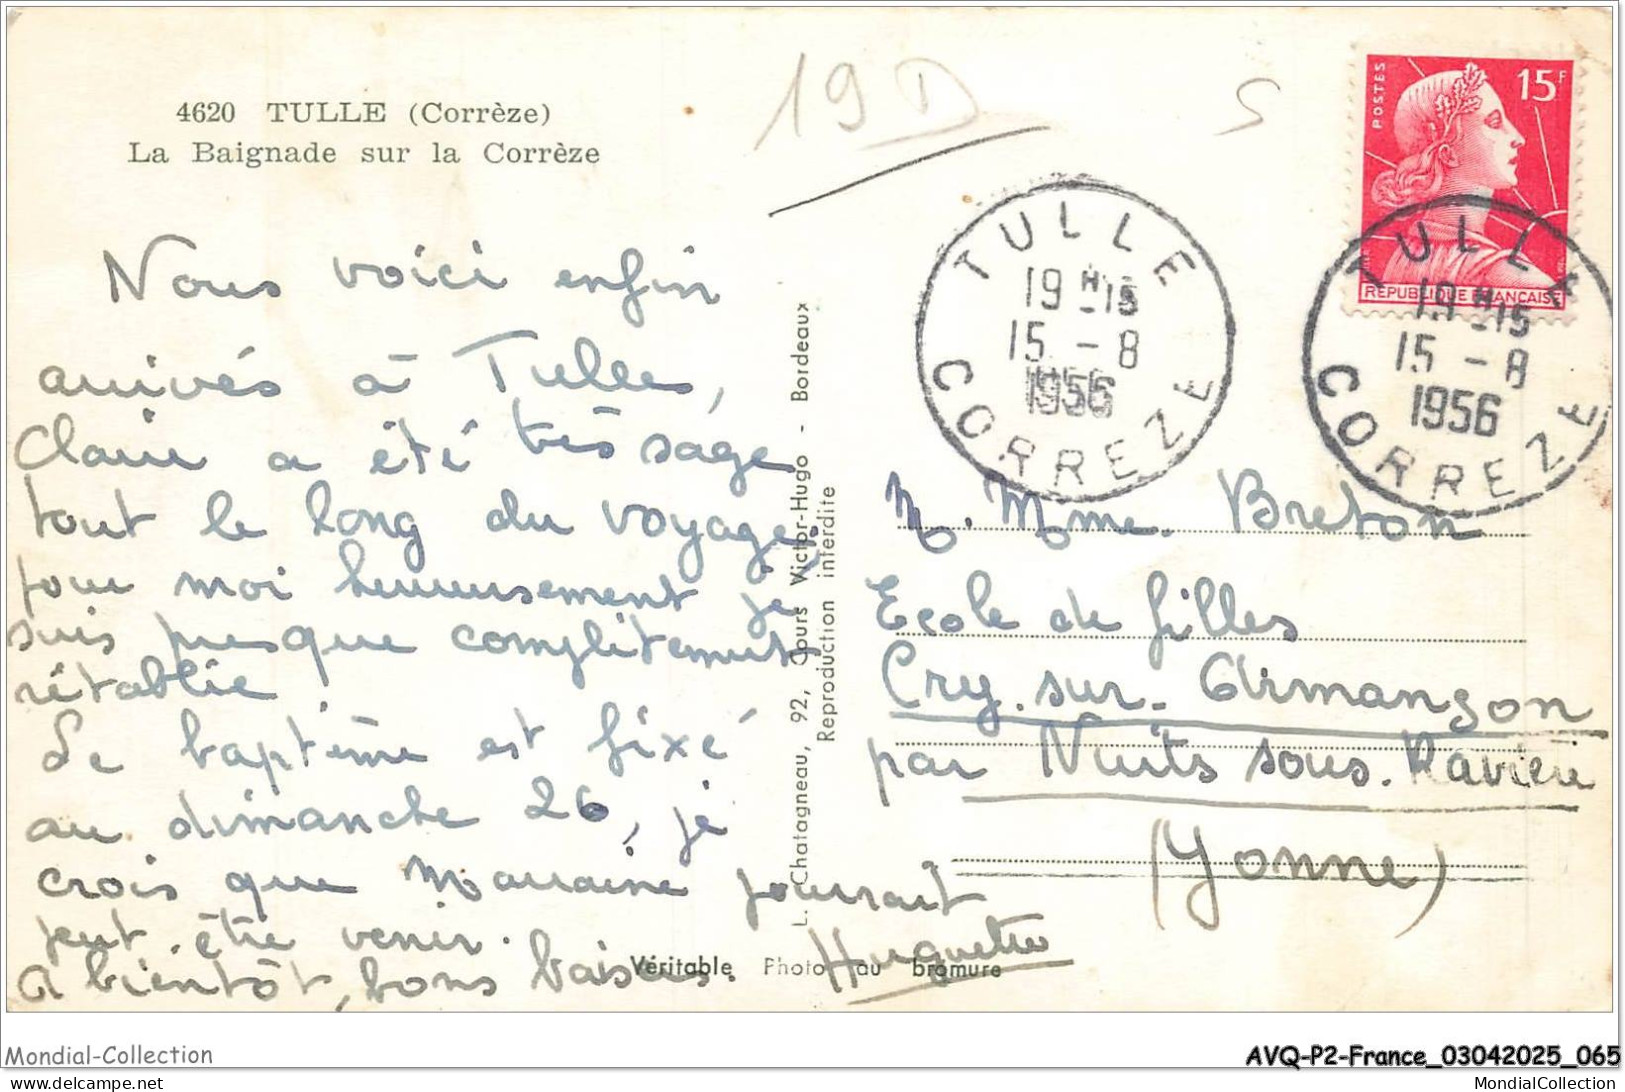 4620 TULLE (Corrèze)
La Baignade sur la Corrèze
19D
S
POSTES
15F
REPUBLIQUE FRANÇAISE
TULLE
19H15
15 - 8
1956
CORREZE
TULLE
19H15
15 - 8
1956
CORREZE
Nous voici enfin
arrivés à Tulle,
Claire a été très sage
tout le long du voyage;
pour moi heureusement je
suis presque complètement
rétablie.
Le baptême est fixé
au dimanche 26, je
crois que Marraine pourrait
peut-être venir.
A bientôt, bons baisers. Huguette
L. Chatagneau, 92, Cours Victor-Hugo - Bordeaux
Reproduction interdite
Véritable Photo au bromure
M. Mme. Breton
Ecole de filles
Cry-sur-Armançon
par Nuits sous-Ravière
(Yonne)
Mondial-Collection
AVQ-P2-France_03042025_065
www.delcampe.net
MondialCollection